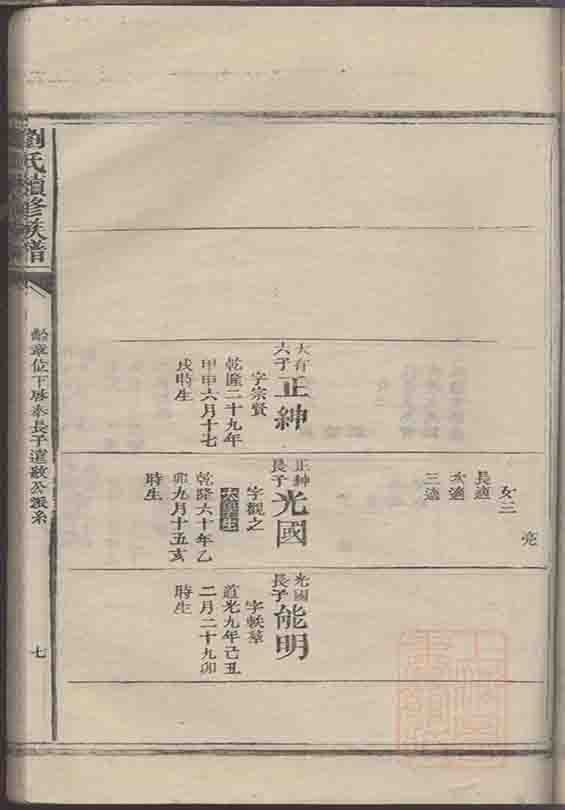 女三
長適
次適
三適
大有六子
正紳
字宗賢
乾隆二十九年
甲申六月十七
戌時生
正紳長子
光國
字觀之
乾隆六十年乙
卯九月十五亥
時生
光國長子
能明
字
道光九年己丑
二月二十九卯
時生
劉氏續修族譜
章位下 泰長子 公派系
七